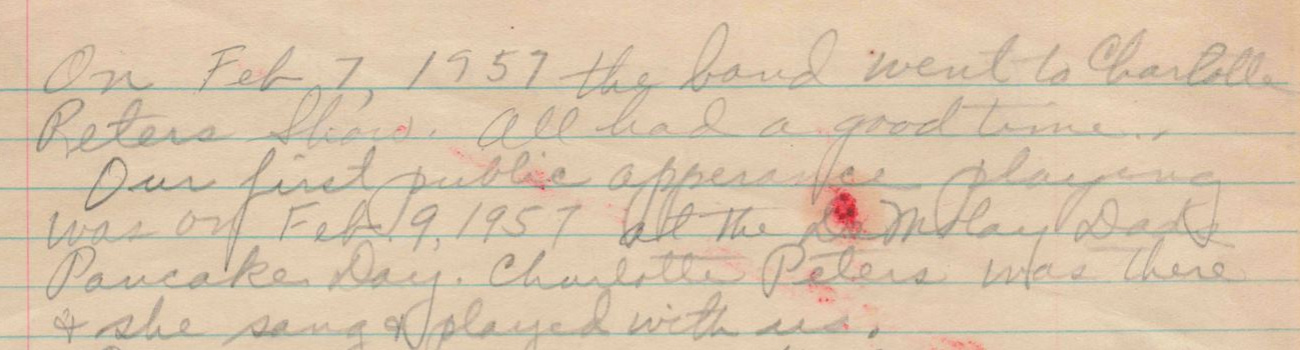 On Feb 7, 1957 the band went to Charlotte
Peters Show. All had a good time..
Our first public apperance playing
was on Feb. 9, 1957 at the DeMolay Dads
Pancake Day. Charlotte Peters was there
& she sang & played with us.